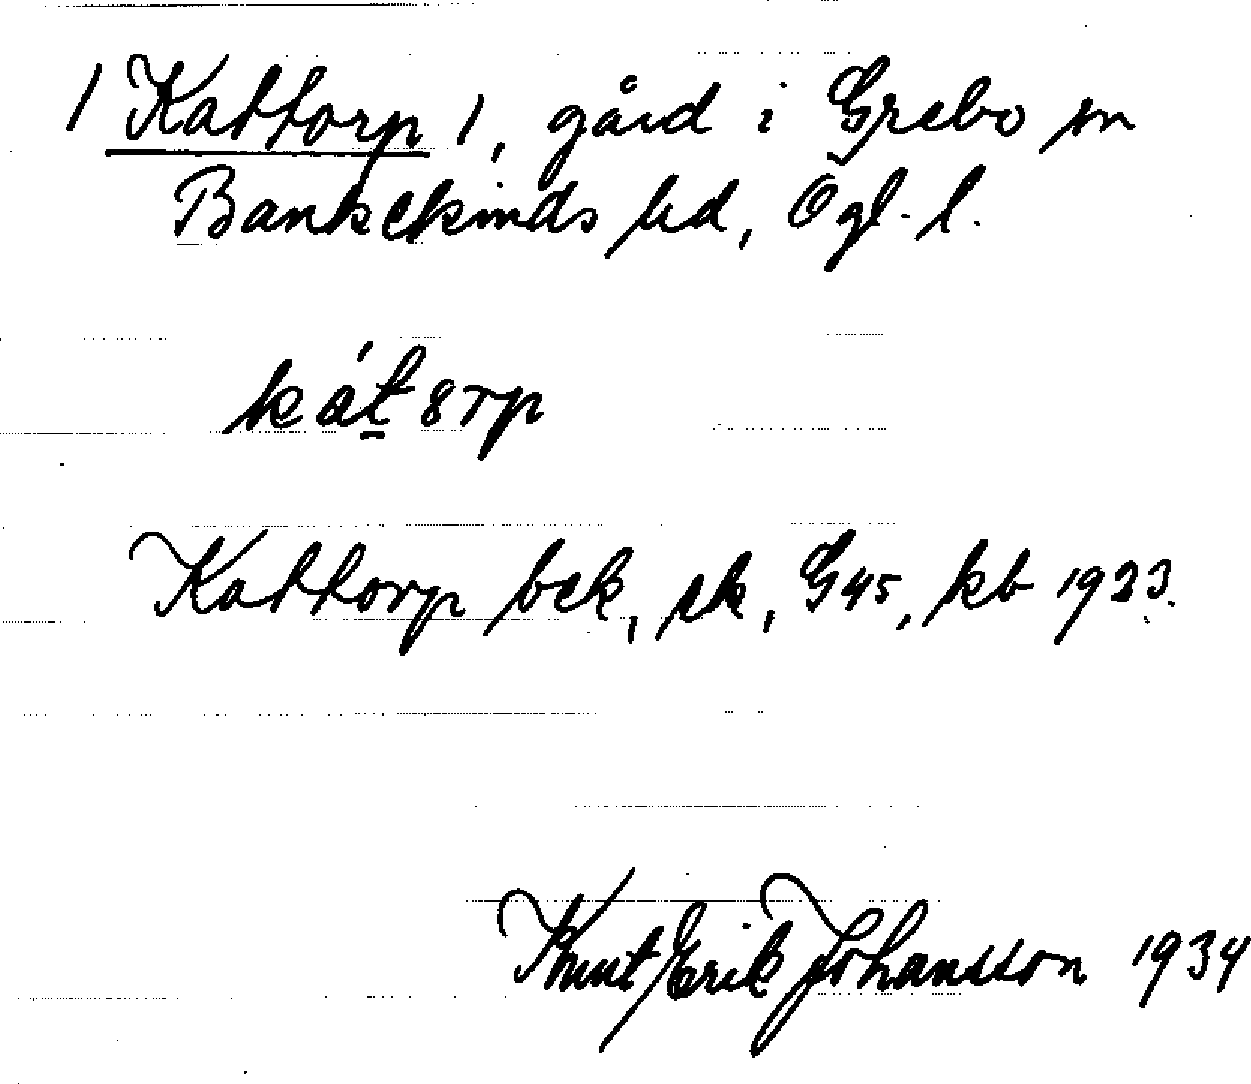 / Kattorp /, gård i Grebo sn
Bankekinds hd, Ögl. l.
kát̠8rp
Kattorp bek, sk, G45, kb 1923.
Knut Erik Johansson 1934